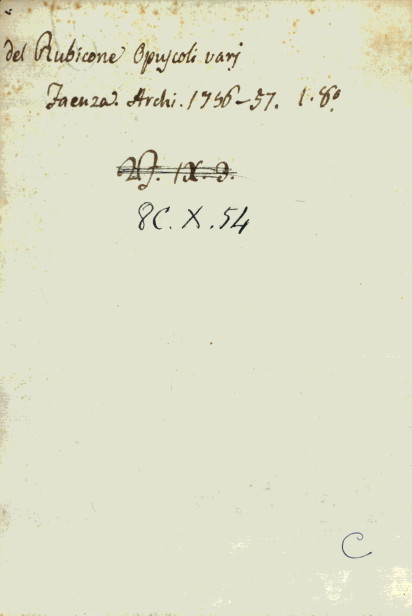 del Rubicone Opuscoli varj
Faenza. Archi. 1756-57. 1. 8º.
IX. 9.
8C. X. 54
C